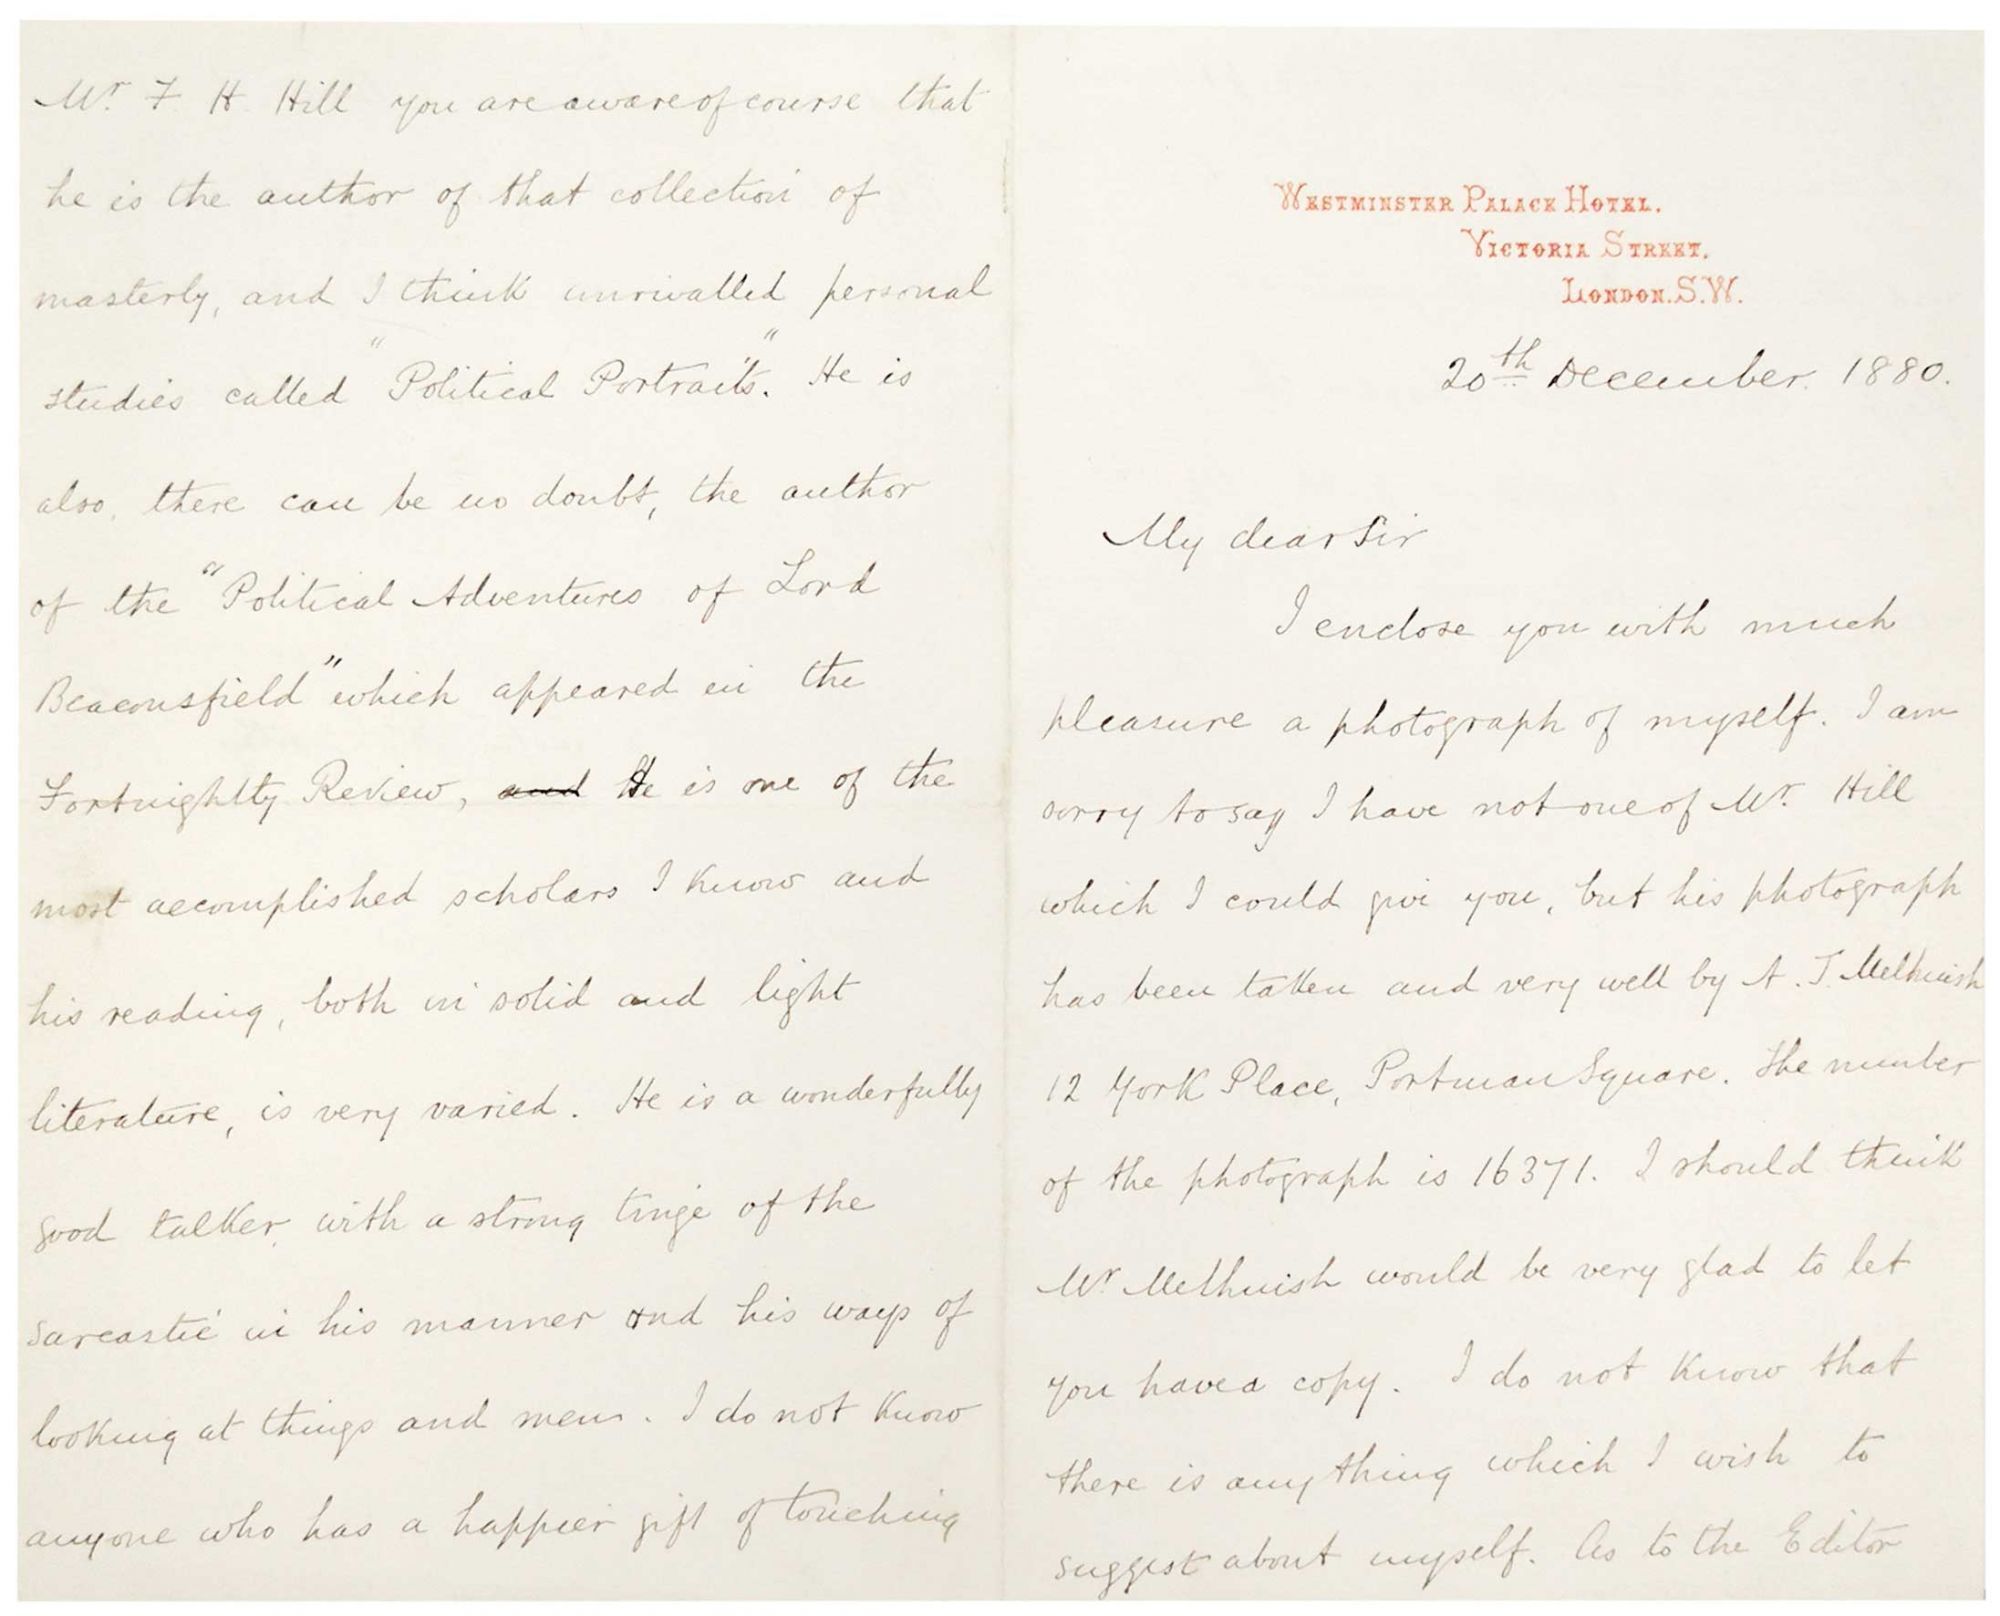 WESTMINSTER PALACE HOTEL.
VICTORIA STREET.
LONDON. S.W.
20th December. 1880.
My dear Sir
I enclose you with much
pleasure a photograph of myself. I am
sorry to say I have not one of Mr. Hill
which I could give you, but his photograph
has been taken and very well by A. J. Melhuish
12 York Place, Portman Square. The number
of the photograph is 16371. I should think
Mr Melhuish would be very glad to let
you have a copy. I do not know that
there is anything which I wish to
suggest about myself. As to the Editor
Mr. F. H. Hill you are aware of course that
he is the author of that collection of
masterly, and I think unrivalled personal
studies called "Political Portraits". He is
also, there can be no doubt, the author
of the "Political Adventures of Lord
Beaconsfield" which appeared in the
Fortnightly Review, and He is one of the
most accomplished scholars I know and
his reading, both in solid and light
literature, is very varied. He is a wonderfully
good talker, with a strong tinge of the
sarcastic in his manner and his ways of
looking at things and men. I do not know
anyone who has a happier gift of touching